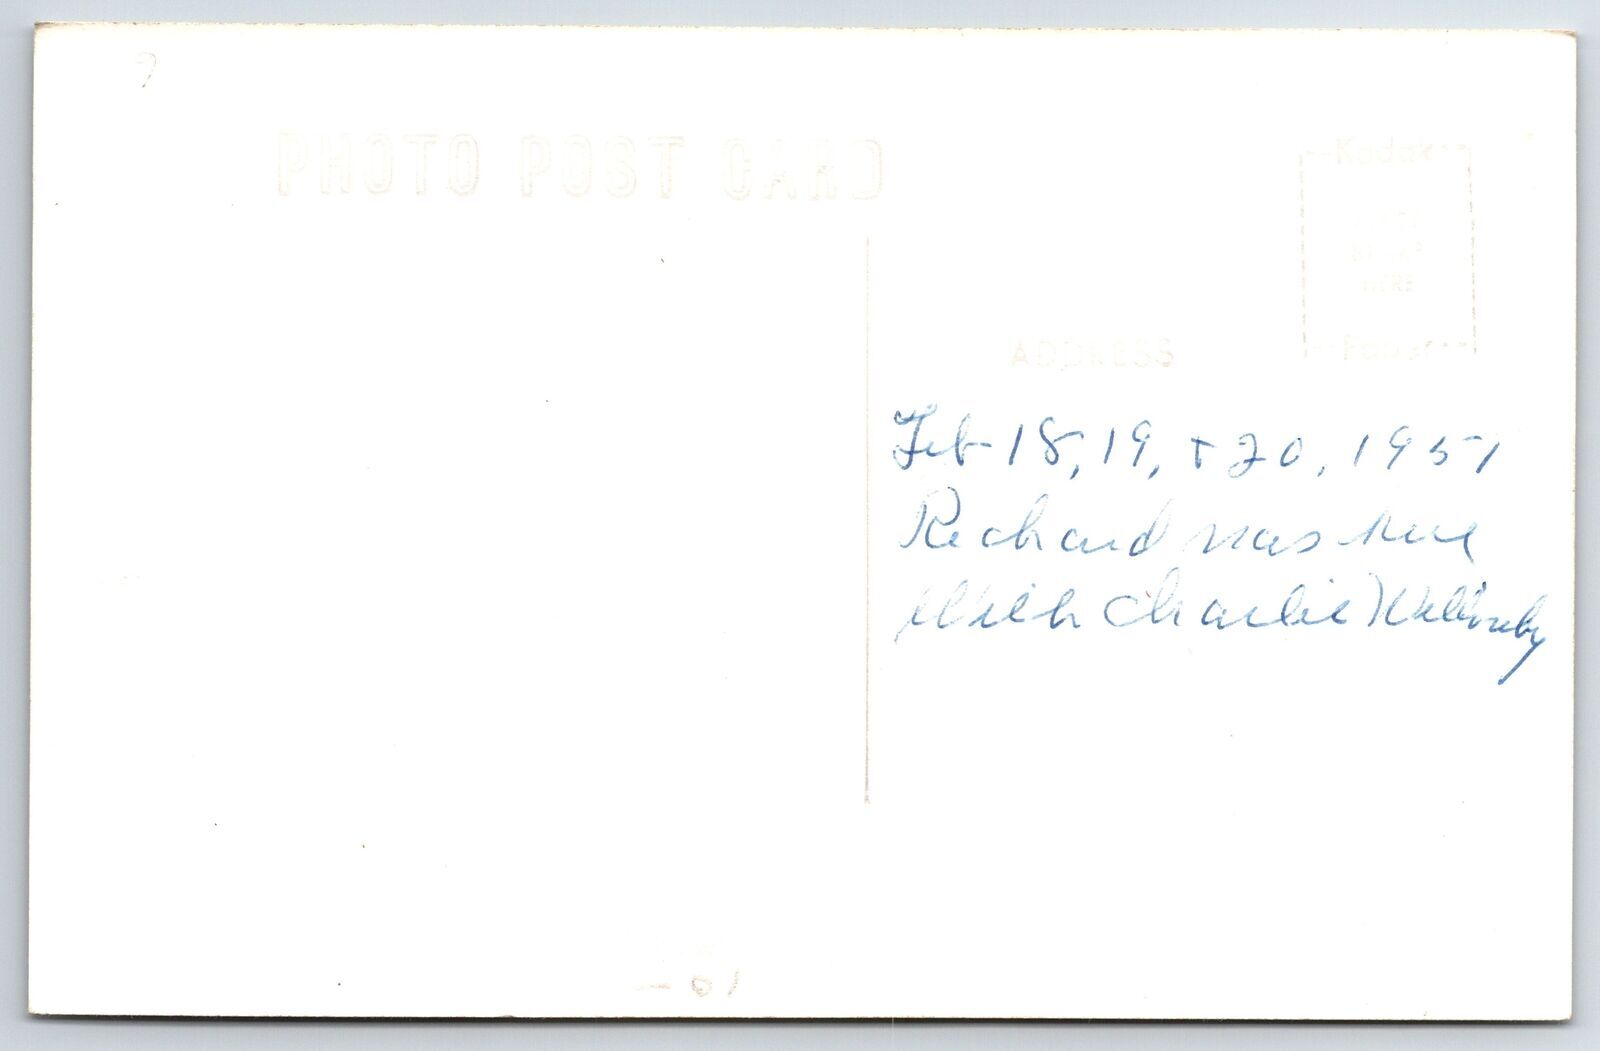 PHOTO POST CARD
Kodak
PLACE
STAMP
HERE
Paper
ADDRESS
Feb 18, 19, + 20, 1951
Richard was here
With Charlie Willoughby